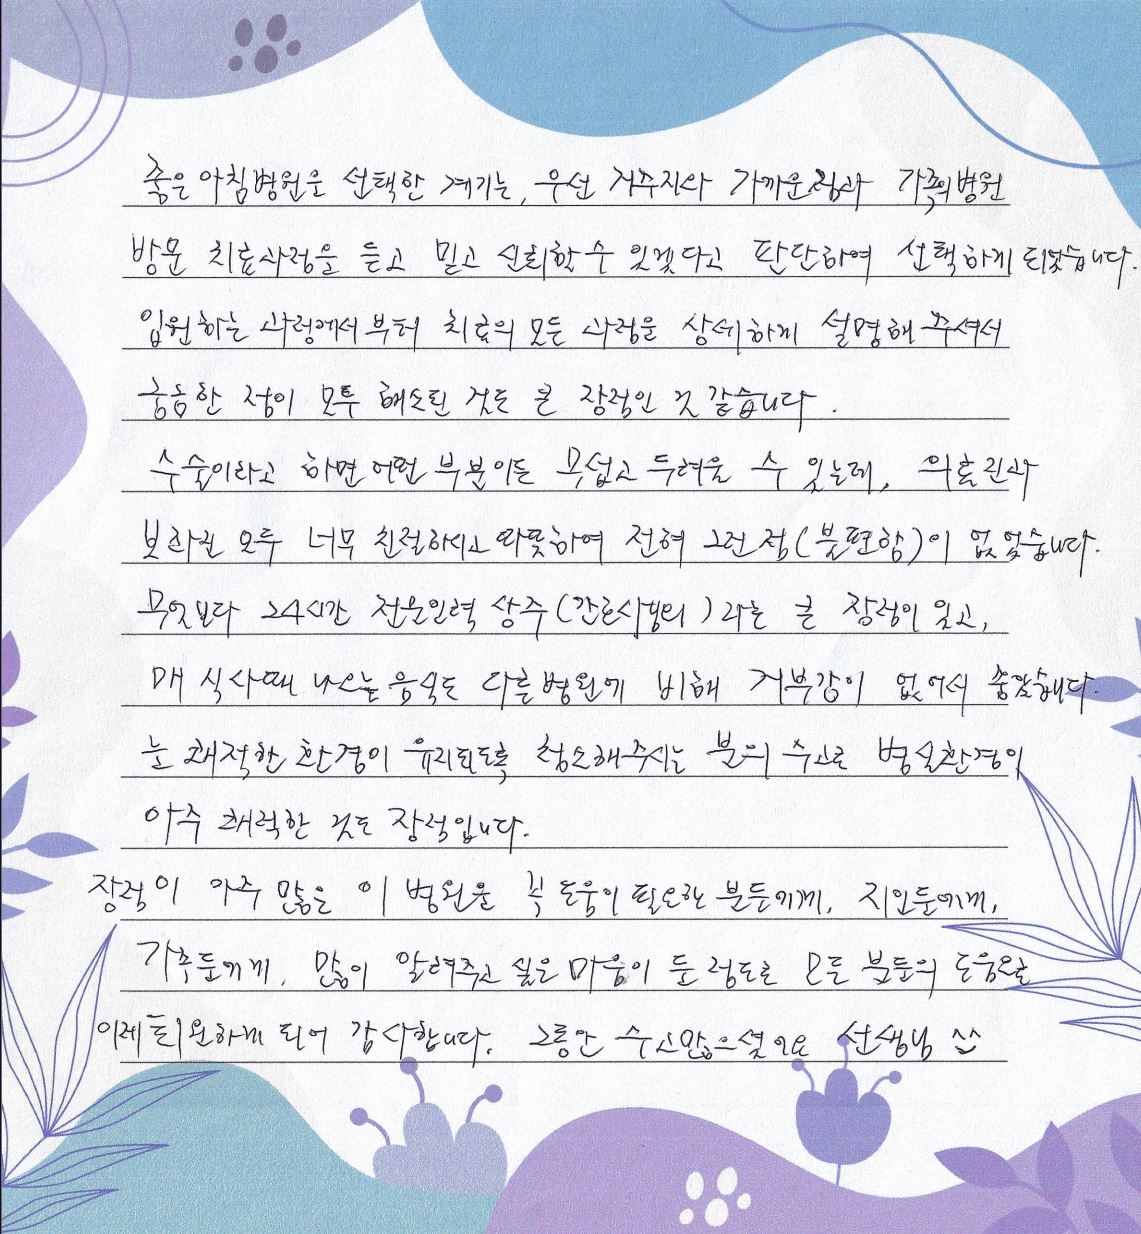 좋은아침병원을 선택한 계기는, 우선 거주지와 가까운점과 가족의 병원
방문 치료과정을 듣고 믿고 신뢰할 수 있겠다고 판단하여 선택하게 되었습니다.
입원하는 과정에서부터 치료의 모든 과정을 상세하게 설명해 주셔서
궁금한 점이 모두 해소된 것도 큰 장점인 것 같습니다.
수술이라고 하면 어떤 부분이든 무섭고 두려울 수 있는데, 의료진과
보호자분 모두 너무 친절하시고 따뜻하여 전혀 그런 점(불편함)이 없었습니다.
무엇보다 24시간 전문인력 상주(간호사,병의)라는 큰 장점이 있고,
매 식사때 나오는 음식도 다른병원에 비해 거부감이 없어서 좋았습니다.
늘 쾌적한 환경이 유지되도록 청소해주시는 분의 수고로 병실환경이
아주 쾌적한 것도 장점입니다.
장점이 아주 많은 이 병원을 꼭 도움이 필요한 분들에게, 지인들에게,
가족들에게, 많이 알려주고 싶은 마음이 들 정도로 모든 분들의 도움으로
이제 퇴원하게 되어 감사합니다. 그동안 수고많으셨어요 선생님 ^^